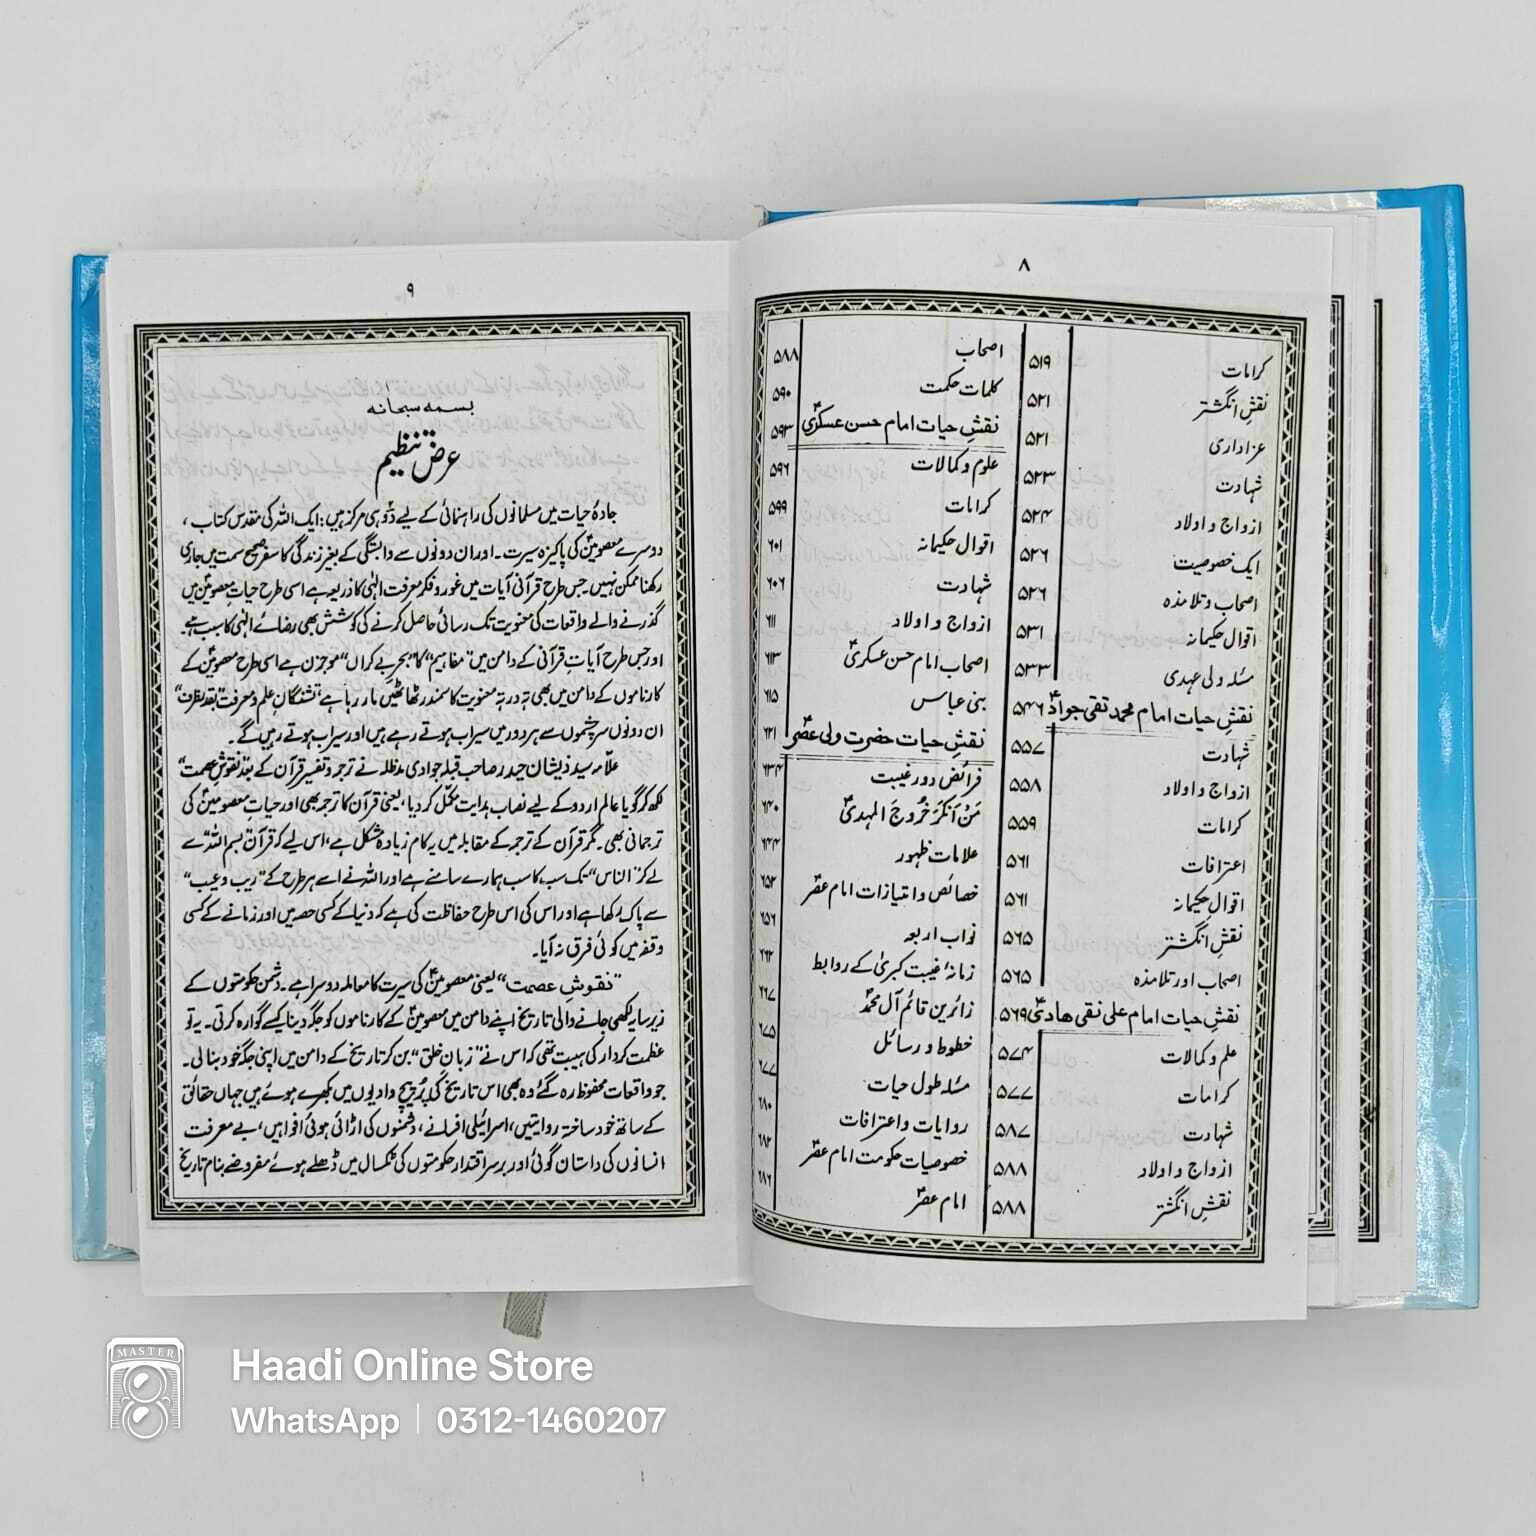 ۸
کرامات ۵۱۹
نقشِ انگشتر ۵۲۱
عزاداری ۵۲۱
شہادت ۵۲۳
ازواج و اولاد ۵۲۴
ایک خصوصیت ۵۲۶
اصحاب و تلامذہ ۵۲۶
اقوال حکیمانہ ۵۳۱
مسئلہ ولی عہدی ۵۳۳
نقشِ حیات امام محمد تقی جوادؑ ۵۴۶
شہادت ۵۵۷
ازواج و اولاد ۵۵۸
کرامات ۵۵۹
اعترافات ۵۶۱
اقوال حکیمانہ ۵۶۱
نقشِ انگشتر ۵۶۵
اصحاب اور تلامذہ ۵۶۵
نقشِ حیات امام علی نقی ھادیؑ ۵۶۹
علم و کمالات ۵۷۴
کرامات ۵۷۷
شہادت ۵۸۷
ازواج و اولاد ۵۸۸
نقشِ انگشتر ۵۸۸
اصحاب ۵۸۸
کلمات حکمت ۵۹۰
نقشِ حیات امام حسن عسکریؑ ۵۹۳
علوم و کمالات ۵۹۶
کرامات ۵۹۹
اقوال حکیمانہ ۶۰۱
شہادت ۶۰۶
ازواج و اولاد ۶۱۱
اصحاب امام حسن عسکریؑ ۶۱۳
بنی عباس ۶۱۵
نقشِ حیات حضرت ولی عصرؑ ۶۲۱
فرائض دور غیبت ۶۳۴
مَنْ اَنْکَرَ خُرُوجَ المہدیؑ ۶۴۰
علامات ظہور ۶۴۴
خصائص و امتیازات امام عصرؑ ۶۵۳
نواب اربعہ ۶۵۶
زمانۂ غیبت کبریٰ کے روابط ۶۶۲
زائرین قائم آل محمدؑ ۶۶۷
خطوط و رسائل ۶۷۵
مسئلہ طول حیات ۶۷۷
روایات و اعترافات ۶۸۰
خصوصیات حکومت امام عصرؑ ۶۸۲
امام عصرؑ ۶۸۶
۹
بسمہ سبحانہ
عرض تنظیم
جادۂ حیات میں مسلمانوں کی راہنمائی کے لیے دو ہی مرکز ہیں: ایک اللہ کی مقدس کتاب،
دوسرے معصومینؑ کی پاکیزہ سیرت۔ اور ان دونوں سے وابستگی کے بغیر زندگی کا سفر صحیح سمت میں جاری
رکھنا ممکن نہیں۔ جس طرح قرآنی آیات میں غور و فکر معرفت الٰہی کا ذریعہ ہے اسی طرح حیاتِ معصومینؑ میں
گذرنے والے واقعات کی معنویت تک رسائی حاصل کرنے کی کوشش بھی رضائے الٰہی کا سبب ہے۔
اور جس طرح آیاتِ قرآنی کے دامن میں "مفاہیم" کا "بحرِ بے کراں" موجزن ہے اسی طرح معصومینؑ کے
کارناموں کے دامن میں بھی تہ در تہ معنویت کا سمندر ٹھاٹھیں مار رہا ہے "تشنگانِ علم و معرفت" بقدر ظرف"
ان دونوں سرچشموں سے ہر دور میں سیراب ہوتے رہے ہیں اور سیراب ہوتے رہیں گے۔
علامہ سید ذیشان حیدر صاحب قبلہ جوادی مدظلہ نے ترجمہ و تفسیر قرآن کے بعد "نقوشِ عصمت"
لکھ کر گویا عالم اردو کے لیے نصاب ہدایت مکمل کر دیا، یعنی قرآن کا ترجمہ بھی اور حیاتِ معصومینؑ کی
ترجمانی بھی۔ مگر قرآن کے ترجمہ کے مقابلہ میں یہ کام زیادہ مشکل ہے، اس لیے کہ قرآن "بسم اللہ" سے
لے کر "الناس" تک سب کا سب ہمارے سامنے ہے اور اللہ نے اسے ہر طرح کے "ریب و عیب"
سے پاک رکھا ہے اور اس کی اس طرح حفاظت کی ہے کہ دنیا کے کسی حصہ میں اور زمانے کے کسی
وقفہ میں کوئی فرق نہ آیا۔
"نقوشِ عصمت" یعنی معصومینؑ کی سیرت کا معاملہ دوسرا ہے۔ دشمن حکومتوں کے
زیر سایہ لکھی جانے والی تاریخ اپنے دامن میں معصومینؑ کے کارناموں کو جگہ دینا کیسے گوارہ کرتی۔ یہ تو
عظمت کردار کی ہیبت تھی کہ اس نے "زبان خلق" بن کر تاریخ کے دامن میں اپنی جگہ خود بنا لی۔
جو واقعات محفوظ رہ گئے وہ بھی اس تاریخ کی پُرپیچ وادیوں میں بکھرے ہوئے ہیں جہاں حقائق
کے ساتھ خود ساختہ روایتیں، اسرائیلی افسانے، دشمنوں کی اڑائی ہوئی افواہیں، بے معرفت
انسانوں کی داستان گوئی اور برسراقتدار حکومتوں کی ٹکسال میں ڈھلے ہوئے مفروضے بنام تاریخ
MASTER
Haadi Online Store
WhatsApp | 0312-1460207